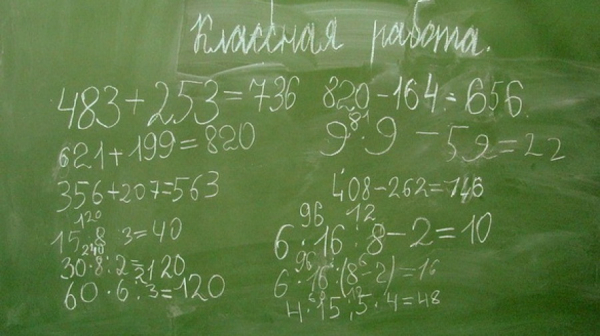 Классная работа.
483+253=736
621+199=820
356+207=563
120
15·8:3=40
240
30·8:2=120
60·6:3=120
820-164=656
81
9·9-59=22
408-262=146
96 12
6·16:8-2=10
96 6
6·16:(8-2)=16
4·15:5·4=48